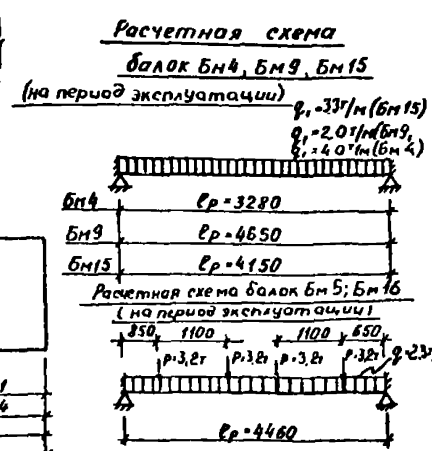 Расчетная схема
балок Бм4, Бм9, Бм15
(на период эксплуатации)
q₁=3,3т/м(Бм15)
q₁=2,0т/м(Бм9,
q₁=4,0т/м(Бм4)
Бм4 ℓр=3280
Бм9 ℓр=4650
Бм15 ℓр=4150
Расчетная схема балок Бм5; Бм16
(на период эксплуатации)
850 1100 1100 650
р=3,2т р=3,2т р=3,2т р=3,2т q=2,3т
ℓр=4460
1
4